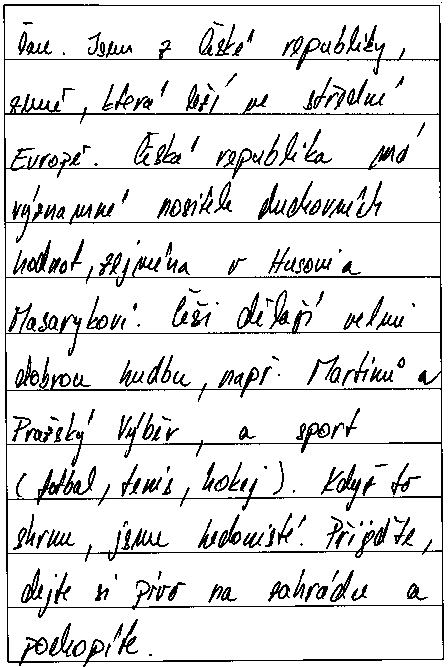 Čau. Jsem z České republiky,
země, která leží ve střední
Evropě. Česká republika má
významné nositele duchovních
hodnot, zejména v Husovi a
Masarykovi. Češi dělají velmi
dobrou hudbu, např. Martinů a
Pražský Výběr, a sport
(fotbal, tenis, hokej). Když to
shrnu, jsme hedonisté. Přijeďte,
dejte si pivo na zahrádce a
pochopíte.